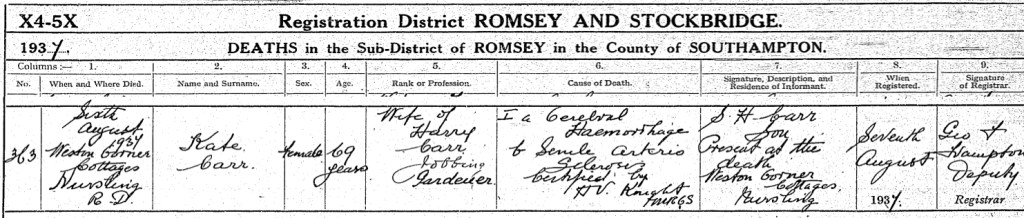 X4-5X
Registration District ROMSEY AND STOCKBRIDGE.
1937. DEATHS in the Sub-District of ROMSEY in the County of SOUTHAMPTON.
Columns:— 1. 2. 3. 4. 5. 6. 7. 8. 9.
No. When and Where Died. Name and Surname. Sex. Age. Rank or Profession. Cause of Death. Signature, Description, and Residence of Informant. When Registered. Signature of Registrar.
363
Sixth
August
1937
Weston Corner
Cottages
Nursling
R.D.
Kate
Carr
Female
69
years
Wife of
Harry
Carr
Jobbing
Gardener
I a Cerebral
Haemorrhage
b Senile Arterio
Sclerosis
Certified by
H V Knight
MRCS
S. H. Carr
Son
Present at the
death
Weston Corner
Cottages
Nursling
Seventh
August
1937
Geo F
Hampton
Deputy
Registrar